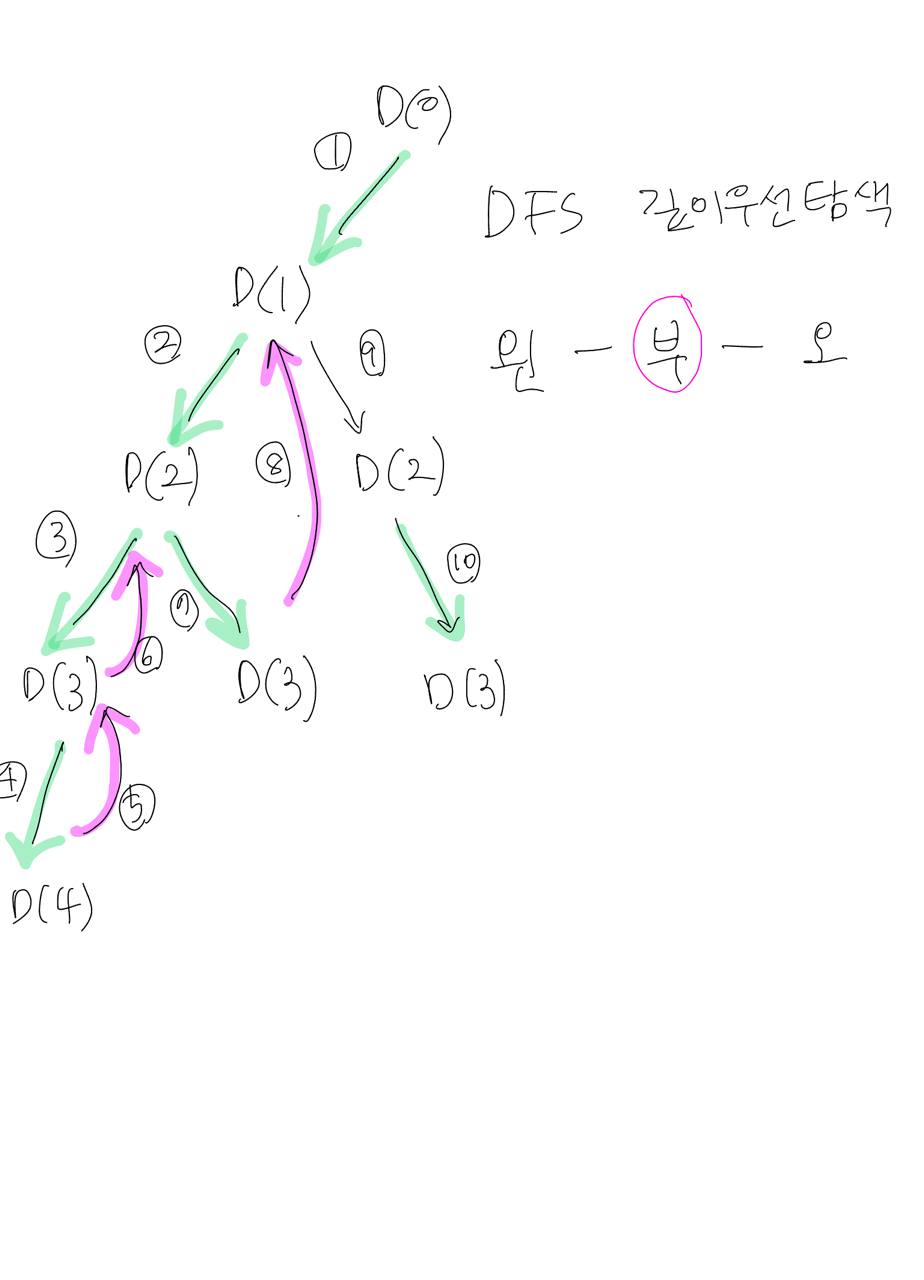 D(0)
①
DFS 깊이우선탐색
D(1)
② ⑨
왼 - 부 - 오
D(2) ⑧ D(2)
③ ⑦ ⑩
⑥
D(3) D(3) D(3)
④ ⑤
D(4)